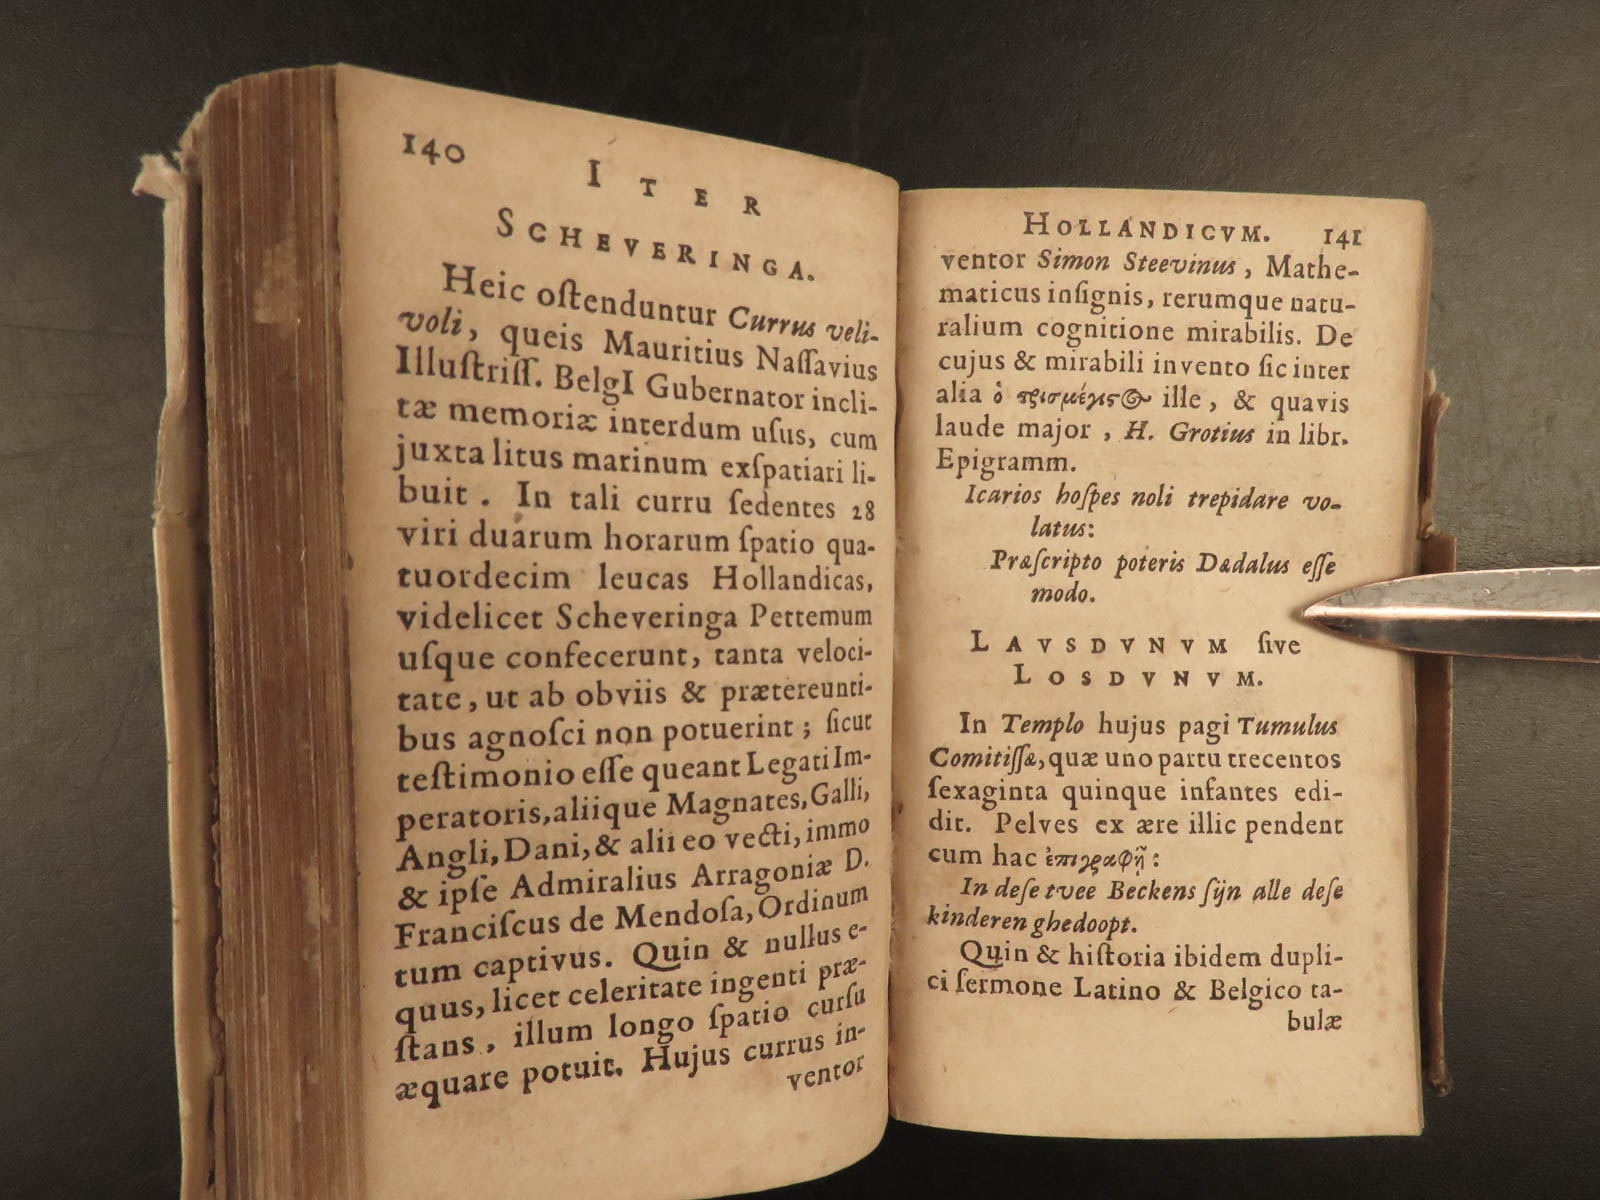 140
ITER
SCHEVERINGA.
Heic oſtenduntur Currus veli-
voli, queis Mauritius Naſſavius
Illuſtriſſ. BelgI Gubernator incli-
tæ memoriæ interdum uſus, cum
juxta litus marinum exſpatiari li-
buit. In tali curru ſedentes 28
viri duarum horarum ſpatio qua-
tuordecim leucas Hollandicas,
videlicet Scheveringa Pettemum
uſque confecerunt, tanta veloci-
tate, ut ab obviis & prætereunti-
bus agnoſci non potuerint; ſicut
teſtimonio eſſe queant Legati Im-
peratoris, aliique Magnates, Galli,
Angli, Dani, & alii eo vecti, immo
& ipſe Admiralius Arragoniæ D.
Franciſcus de Mendoſa, Ordinum
tum captivus. Quin & nullus e-
quus, licet celeritate ingenti præ-
ſtans, illum longo ſpatio curſu
æquare potuit. Hujus currus in-
ventor
HOLLANDICVM. 141
ventor Simon Steevinus, Mathe-
maticus inſignis, rerumque natu-
ralium cognitione mirabilis. De
cujus & mirabili invento ſic inter
alia ὁ τρισμέγιστος ille, & quavis
laude major, H. Grotius in libr.
Epigramm.
Icarios hoſpes noli trepidare vo-
latus:
Præſcripto poteris Dædalus eſſe
modo.
LAVSDVNVM ſive
LOSDVNVM.
In Templo hujus pagi Tumulus
Comitiſſæ, quæ uno partu trecentos
ſexaginta quinque infantes edi-
dit. Pelves ex ære illic pendent
cum hac ἐπιγραφῇ:
In deſe tvee Beckens ſijn alle deſe
kinderen ghedoopt.
Quin & hiſtoria ibidem dupli-
ci ſermone Latino & Belgico ta-
bulæ